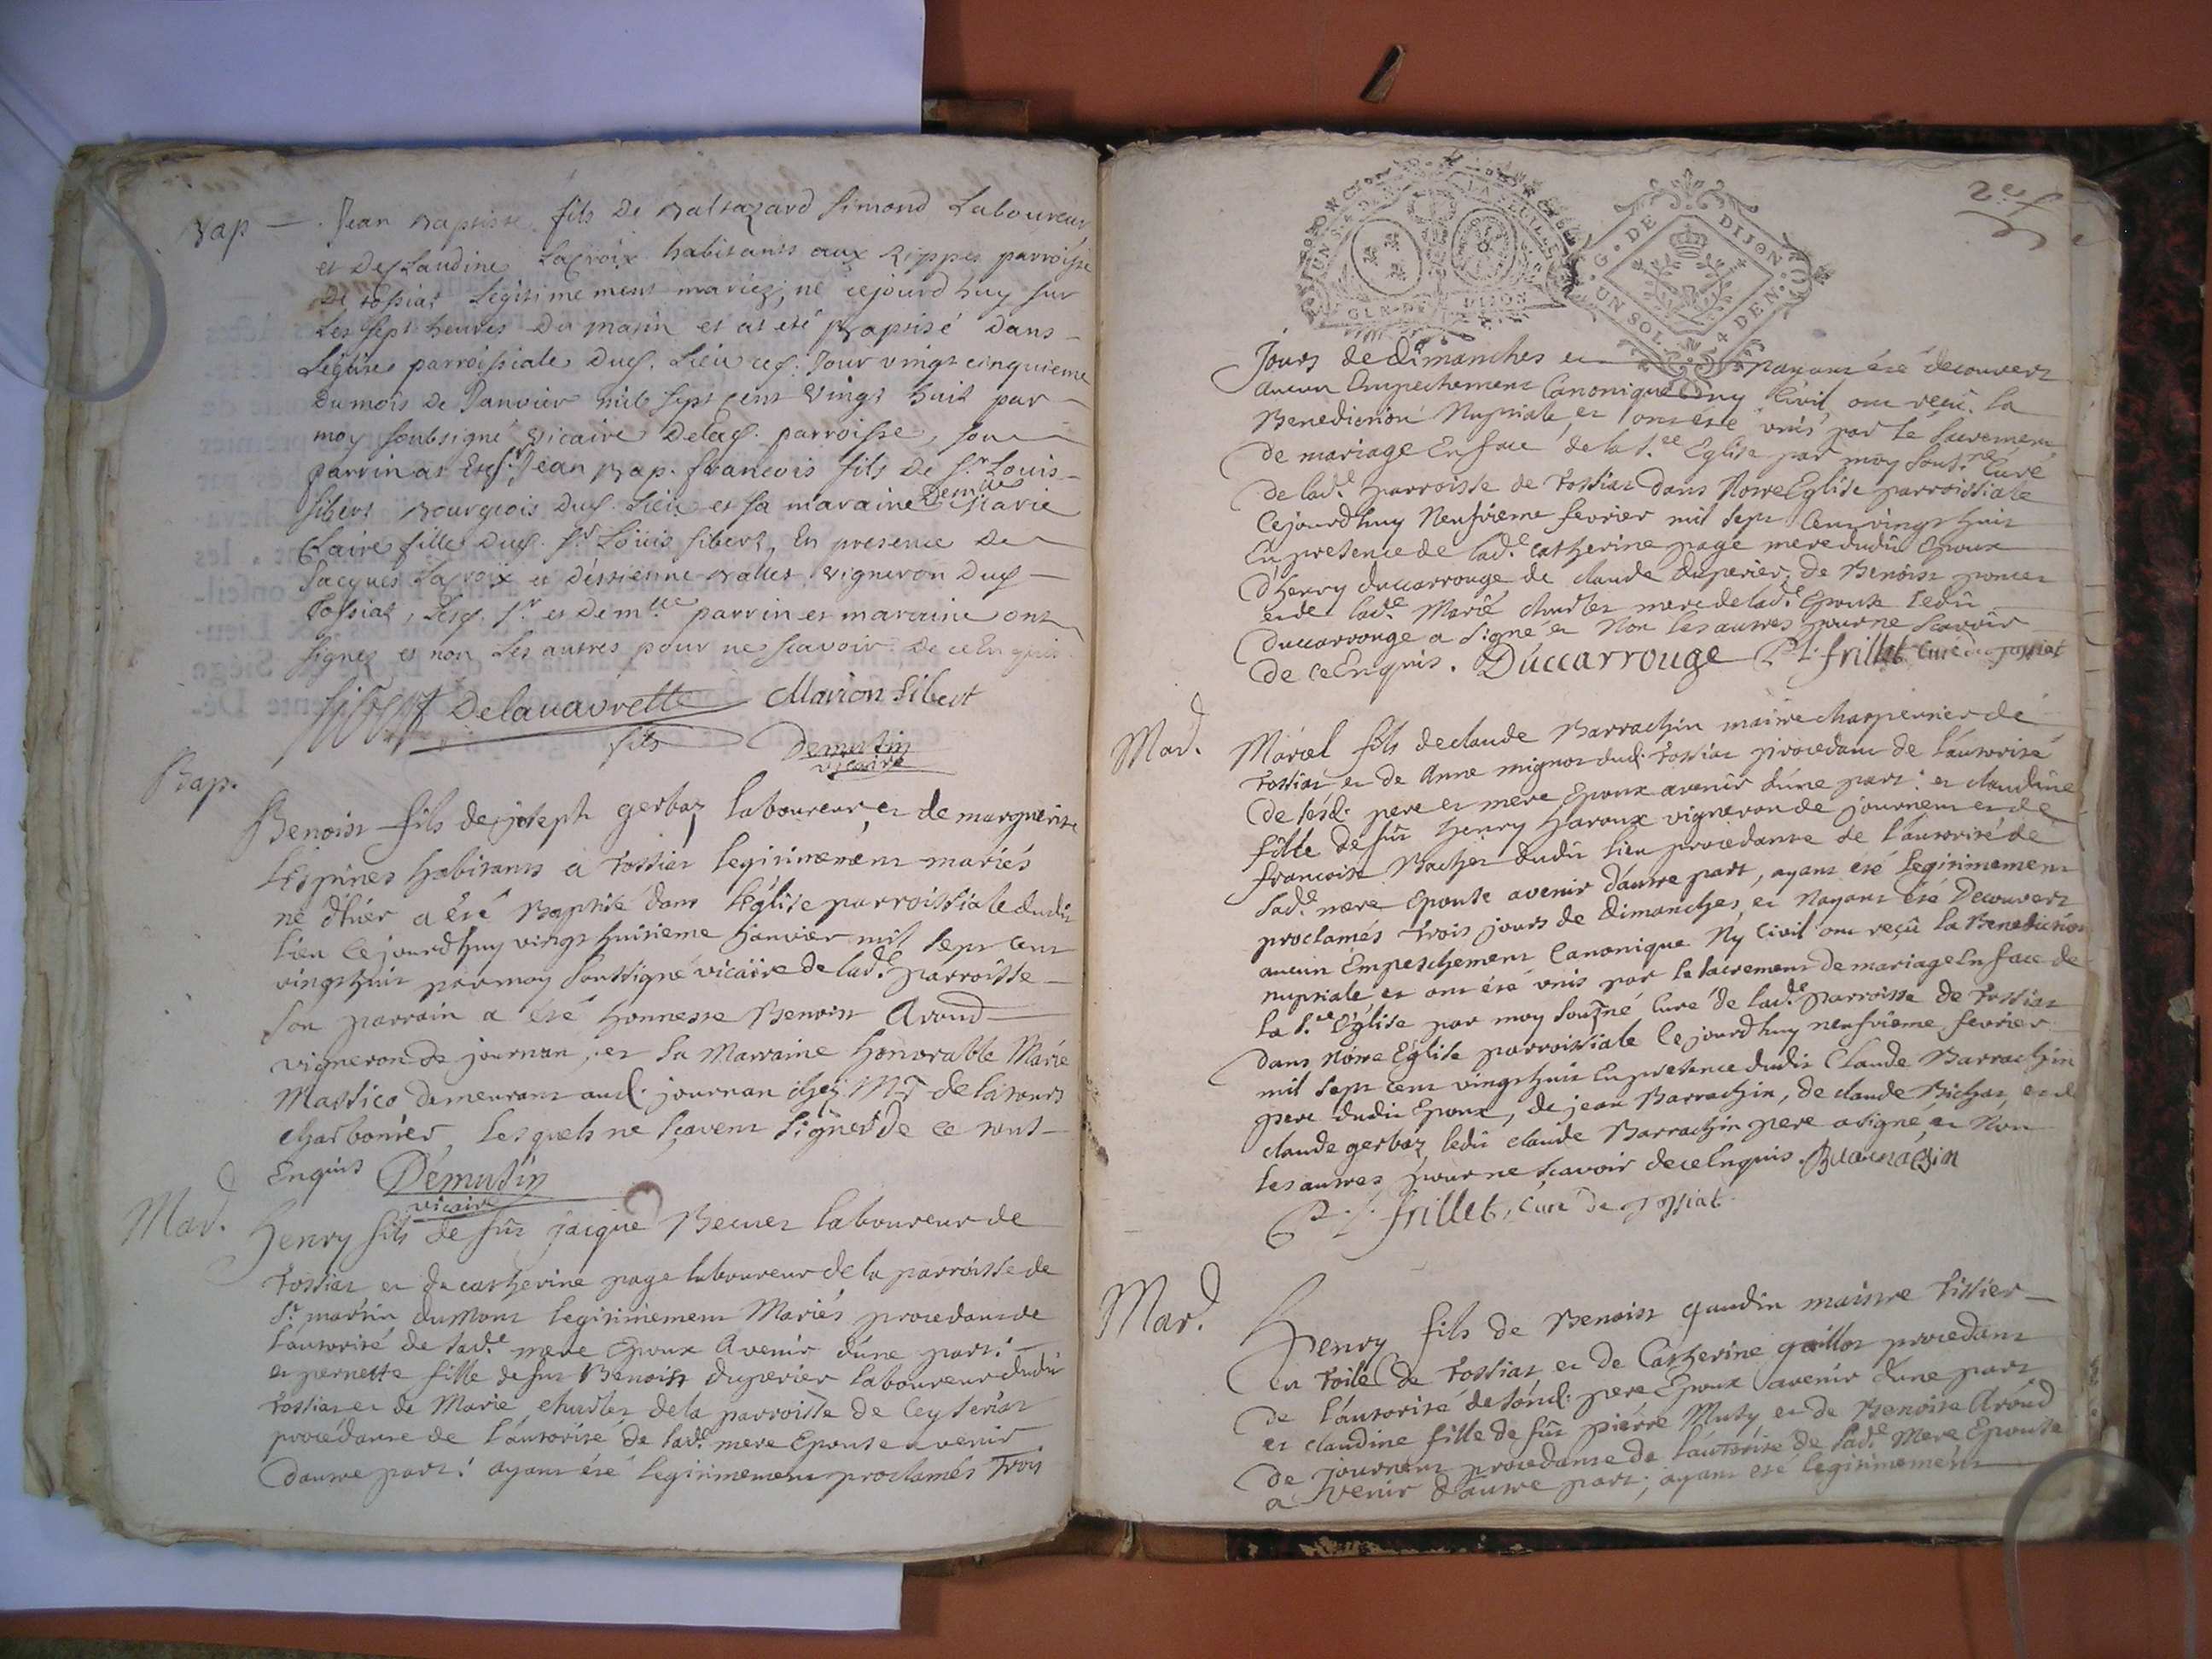 Bap — Jean Baptiste fils De Baltazard Simond Laboureur
et De Claudine Lacroix habitants aux Rippes parroisse
De Tossiat Legitimement mariez, né cejourd'huy sur
Les sept heures Du matin et at eté Baptisé Dans
L'église parroissiale Dud. Lieu ced. Jour vingt cinquieme
Du mois De Janvier mil sept cent vingt huit par
moy soubsigné vicaire Delad. parroisse, son
parrin at été Sr Jean Bap. francois fils De Sr Louis
Sibert Bourgeois Dud. Lieu et sa maraine Demlle Marie
Claire fille Dud. Sr Louis Sibert, En presence De
Jacques Lacroix et D'éstienne vigneron Dud
Tossiat, Lesd. Sr et Demlle parrin et maraine ont
signez et non Les autres pour ne scavoir De ce Enquis
Marion Sibert
fils Demutin
vicaire
Bap.
Benoist fils de joseph gerbaz laboureur, et de marguerite
L'Espines habitants a Tossiat legitimement mariés
né d'hier a été Baptisé dans L'église parroissiale dudit
lieu Cejourdhuy vingt huitieme Janvier mil sept cent
vingt huit par moy soussigné vicaire de lad.e parroisse
son parrain a été honneste Benoist Aroud
vigneron de journan, et sa Marraine honorable Marie
Massico demeurant aud. journan chez Mr de latours
charbonier, Lesquels ne sçavent signer de ce tout
Enquis Démutin
vicaire
Mar. Henry fils de fût jacque Beccuer laboureur de
Tossiat et de catherine page laboureur de la parroisse de
St martin du Mont legitimement Mariés procedant de
l'autorité de sad.e mere Epoux Avenir d'une part:
et pernette fille de fut Benoist duperier laboureur dudit
Tossiat et de Marie de la parroisse de Ceyseriat
procédante de l'autorité de sad.e mere Epouse avenir
dautre part: ayant été legitimement proclamés Trois
2e f
G. DE DIJON
UN SOL 4 DEN.
GEN. DE DIJON
Jours de dimanches et Nayant été decouvert
aucun Empechement Canonique ny Civil, ont reçû la
Benediction Nuptiale, et ont été unis par le sacrement
de mariage En face de la S.te Eglise par moy sous.né Curé
de lad.e parroisse de Tossiat dans Notre Eglise parroissiale
Cejourdhuy Neufvieme fevrier mil sept Cent vingt huit
En presence de lad.e Catherine page mere dudit Epoux
d'henry duccarrouge de claude duperier, de Benoist poncet
et de lad.e Marie mere de lad.e Epouse ledit
duccarrouge a signé et Non les autres pour ne scavoir
de ce Enquis. Duccarrouge frillet Curé de Tossiat
Mar. Marcel fils de claude Barrachin maitre charpentier de
Tossiat et de Anne mignot dud. Tossiat procedant de l'autorité
de sesd. pere et mere Epoux avenir d'une part: et claudine
fille de fût henry haroux vigneron de journent et de
francoise Bachet dudit lieu procedante de l'autorité de
sad.e mere Epouse avenir d'autre part, ayant été legitimement
proclamés trois jours de dimanches, et Nayant été Decouvert
aucun Empeschement Canonique Ny Civil ont reçû la Benediction
nuptiale et ont été unis par le sacrement de mariage En face de
la S.te Église par moy sous.né Curé de lad.e parroisse de Tossiat
dans Nôtre Église parroissiale Cejourdhuy neufvieme fevrier
mil sept cent vingt huit En presence dudit Claude Barrachin
pere dudit Epoux, de jean Barrachin, de claude Bichat, et de
claude gerbaz, ledit claude Barrachin pere a signé, et Non
les autres pour ne scavoir de ce Enquis. Barrachin
frillet, Curé de Tossiat.
Mar. Henry fils de Benoist gaudin maistre tissier
en toile de Tossiat, et de Catherine gaillot procedant
de l'autorité de sond. pere Epoux avenir d'une part
et claudine fille de fût pièrre Musy et de Benoite Aroud
de journent procedante de l'autorité de sad.e Mere Epouse
a venir d'autre part; ayant été legitimement